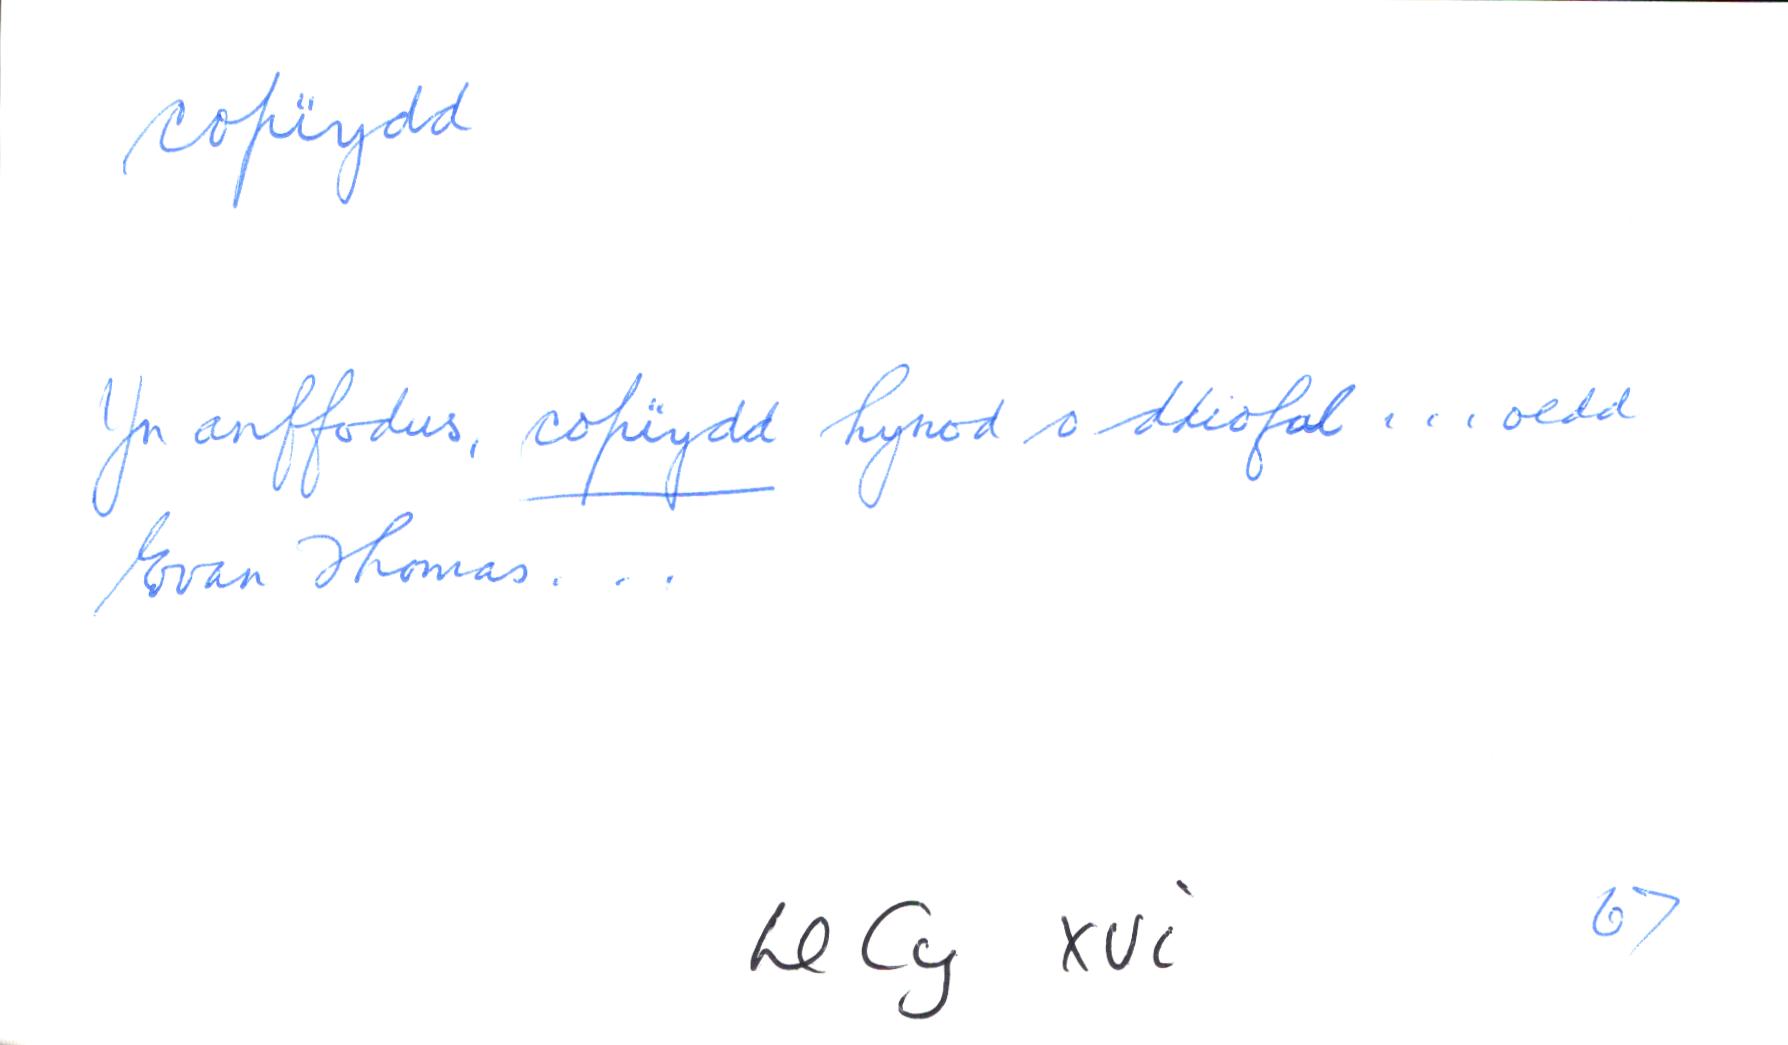 copïydd
Yn anffodus, copïydd hynod o ddiofal . . . oedd
Evan Thomas. . .
Ll Cy xvi
67